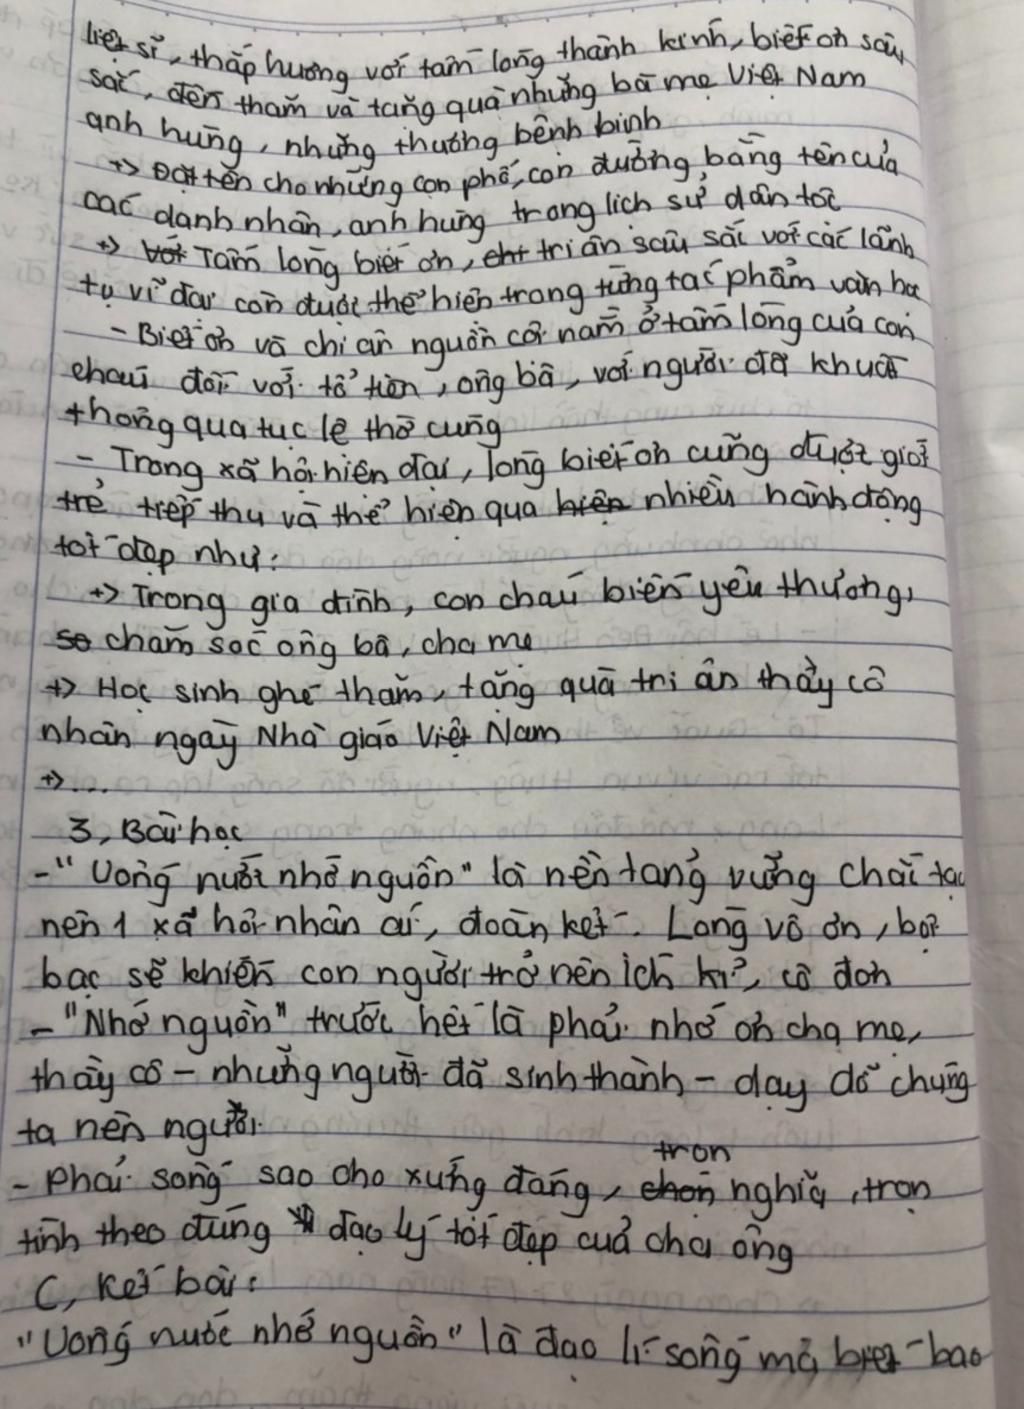 liệt sĩ, thắp hương với tấm lòng thành kính, biết ơn sâu
sắc, đến thăm và tặng quà những bà mẹ Việt Nam
anh hùng, những thương bệnh binh
+> Đặt tên cho những con phố, con đường bằng tên của
các danh nhân, anh hùng trong lịch sử dân tộc
+> Tấm lòng biết ơn, tri ân sâu sắc với các lãnh
tụ vĩ đại còn được thể hiện trong từng tác phẩm văn học
- Biết ơn và chi ân nguồn cội nằm ở tấm lòng của con
cháu đối với tổ tiên, ông bà, với người đã khuất
thông qua tục lệ thờ cúng
- Trong xã hội hiện đại, lòng biết ơn cũng được giới
trẻ tiếp thu và thể hiện qua hiện nhiều hành động
tốt đẹp như:
+> Trong gia đình, con cháu biến yêu thương,
so chăm sóc ông bà, cha mẹ
+> Học sinh ghé thăm, tặng quà tri ân thầy cô
nhân ngày Nhà giáo Việt Nam
+> ...
3, Bài học
- "Uống nước nhớ nguồn" là nền tảng vững chãi tạo
nên 1 xã hội nhân ái, đoàn kết. Lòng vô ơn, bội
bạc sẽ khiến con người trở nên ích kỉ, cô đơn
- "Nhớ nguồn" trước hết là phải nhớ ơn cha mẹ,
thầy cô - những người đã sinh thành - dạy dỗ chúng
ta nên người.
trọn
- Phải sống sao cho xứng đáng, chọn nghĩa, trọn
tình theo đúng đạo lý tốt đẹp của cha ông
C, Kết bài:
"Uống nước nhớ nguồn" là đạo lí sống mà biết bao